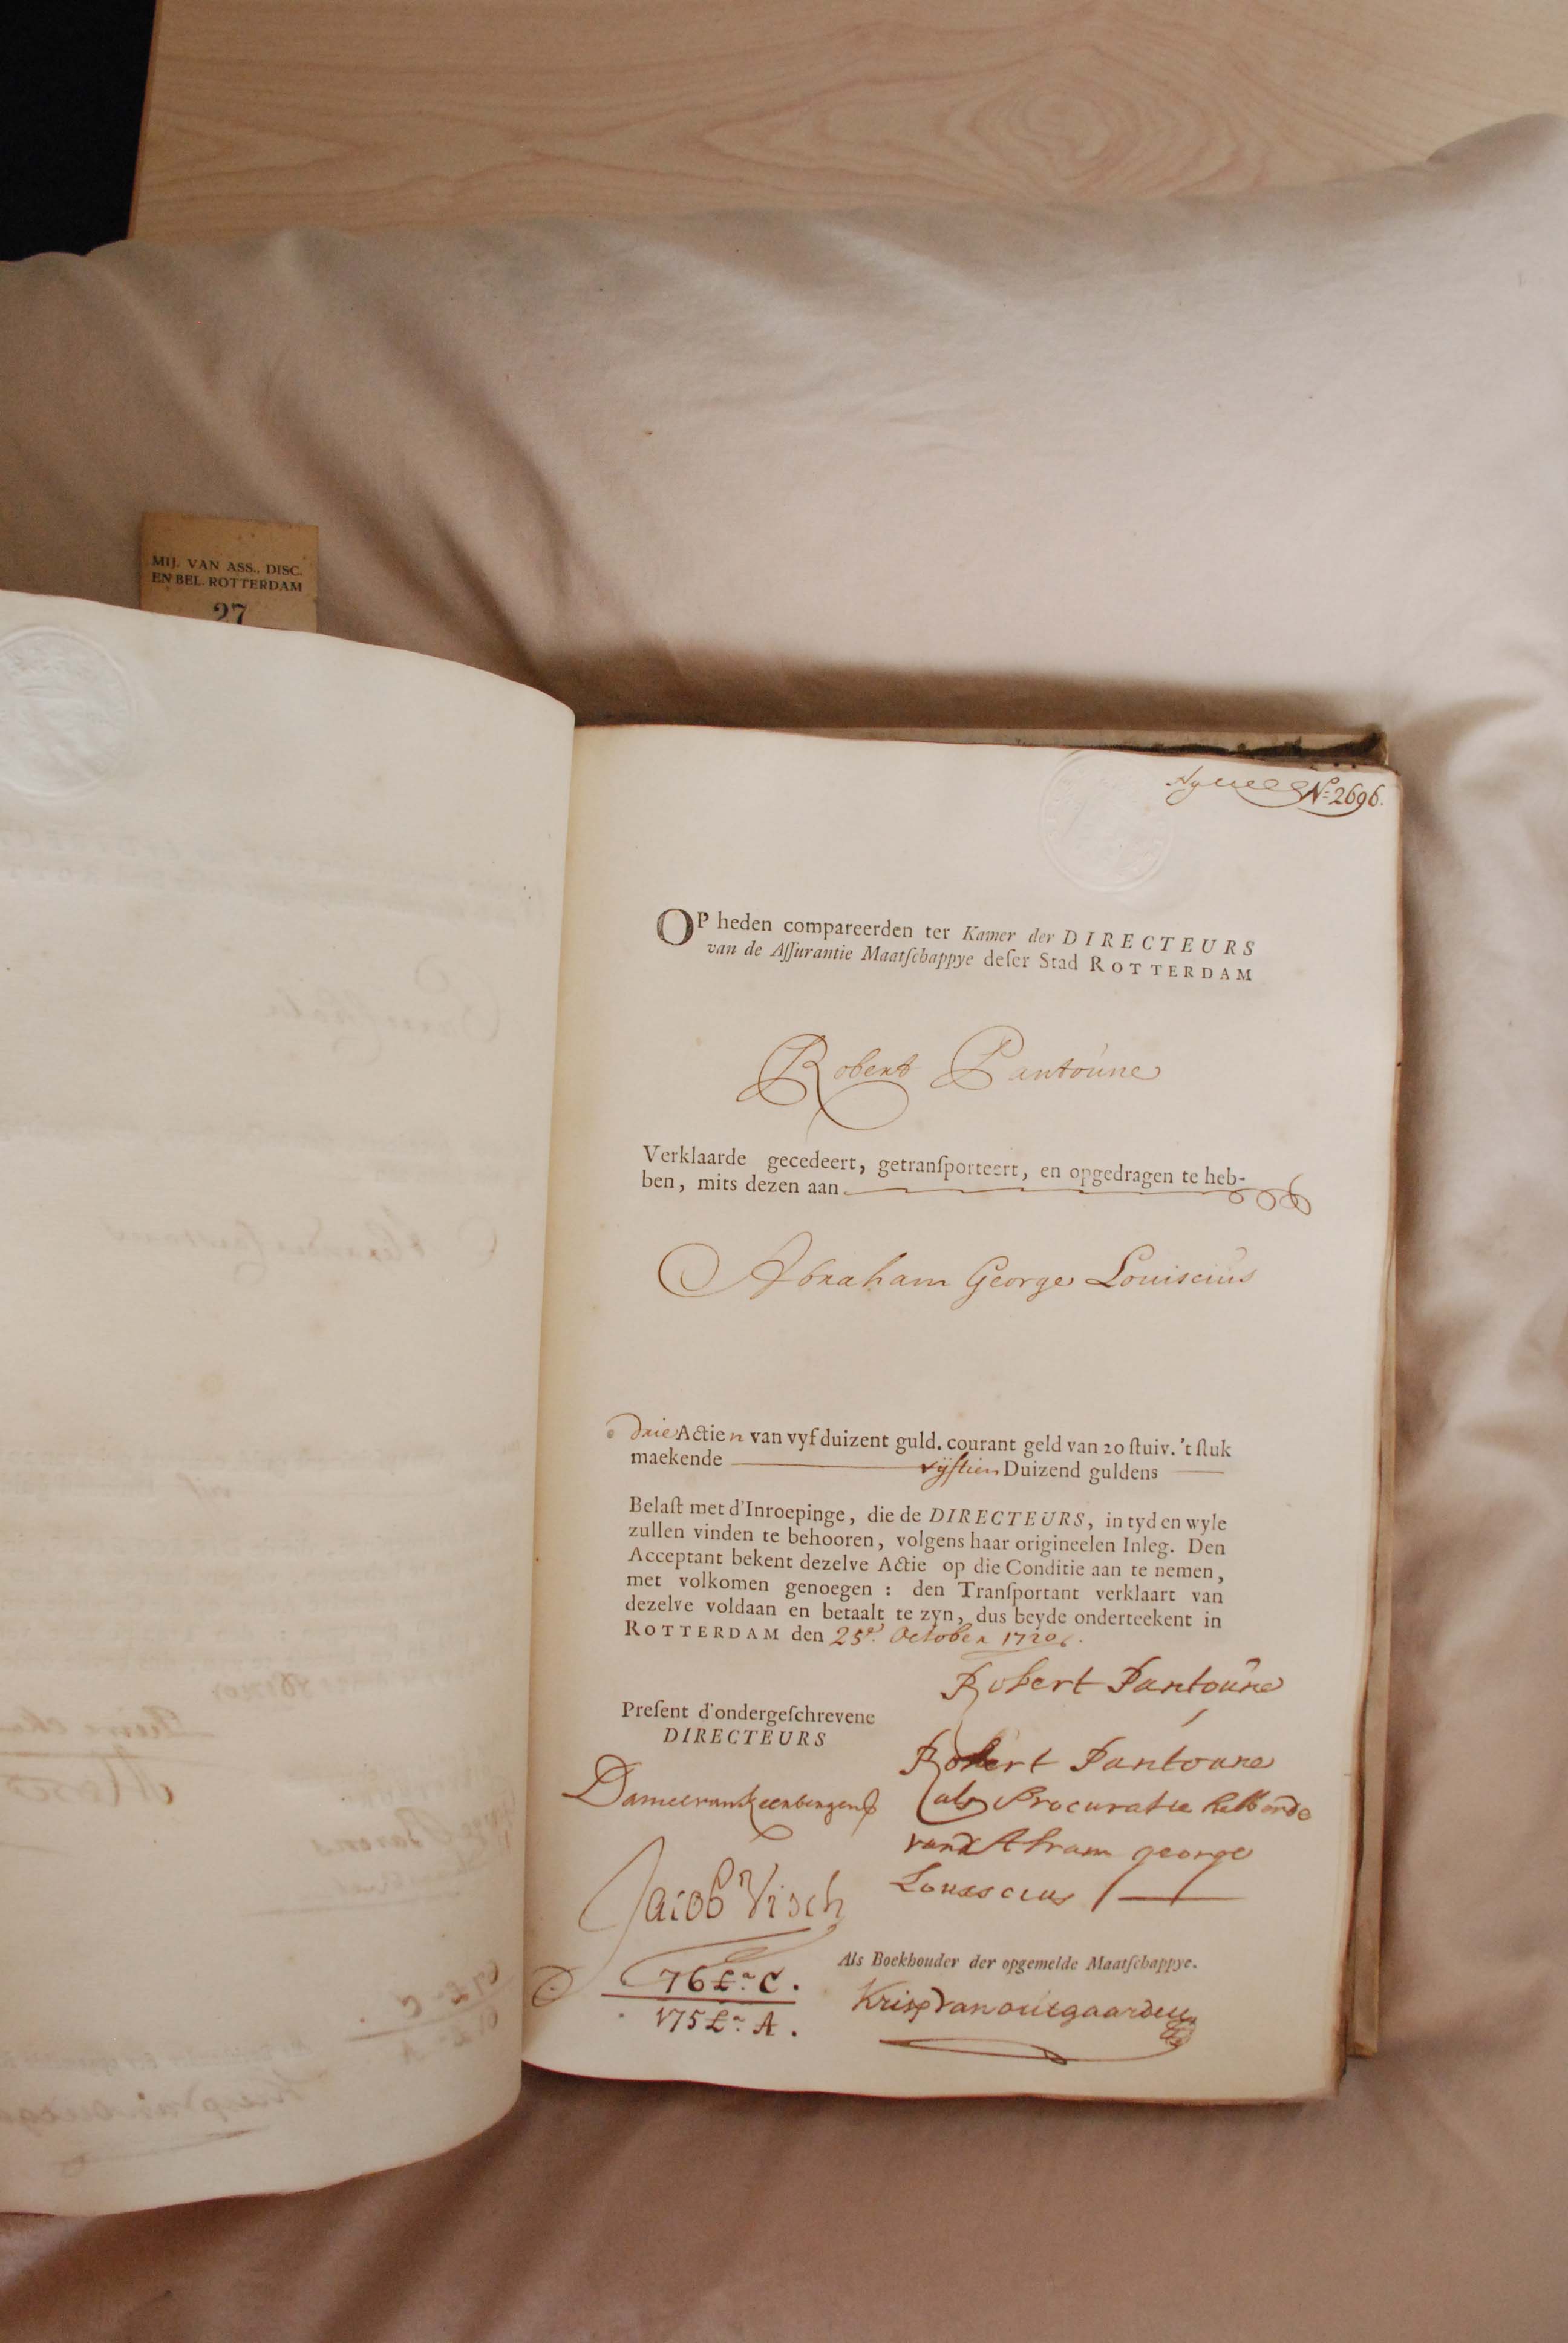 MIJ. VAN ASS., DISC.
EN BEL. ROTTERDAM
27
No 2696.
OP heden compareerden ter Kamer der DIRECTEURS
van de Aſſurantie Maatſchappye deſer Stad ROTTERDAM
Robert Pantoúne
Verklaarde gecedeert, getranſporteert, en opgedragen te heb-
ben, mits dezen aan
Abraham George Louiscius
Drie Actien van vyf duizent guld. courant geld van 20 ſtuiv. 't ſtuk
maekende vijftien Duizend guldens
Belaſt met d'Inroepinge, die de DIRECTEURS, in tyd en wyle
zullen vinden te behooren, volgens haar origineelen Inleg. Den
Acceptant bekent dezelve Actie op die Conditie aan te nemen,
met volkomen genoegen : den Tranſportant verklaart van
dezelve voldaan en betaalt te zyn, dus beyde onderteekent in
ROTTERDAM den 25e. October 1720.
Robert Pantoúne
Preſent d'ondergeſchrevene
DIRECTEURS
Robert Pantoune
als Procuratie
Abram george
Louiscius
Jacob Visch
Als Boekhouder der opgemelde Maatſchappye.
76 £r. C.
175 £r. A.